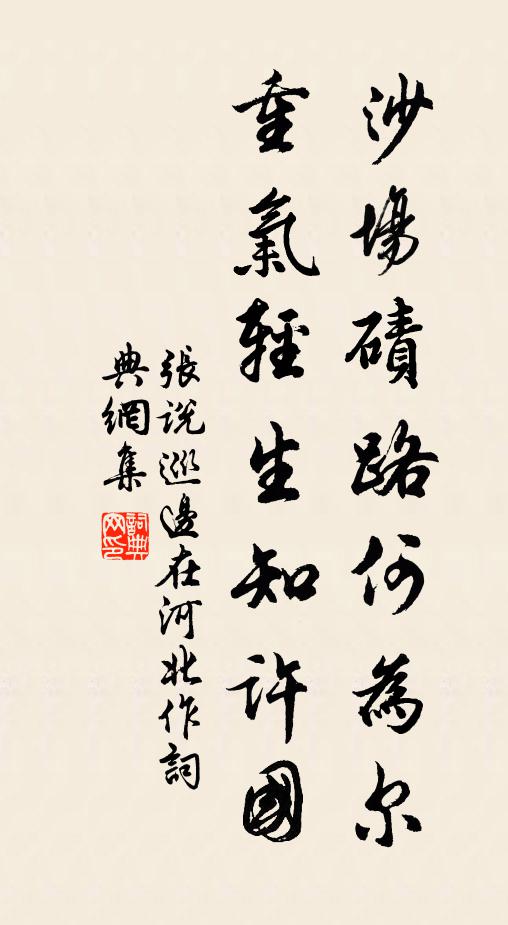 沙場磧路何為尔
重氣輕生知許國
張說巡邊在河北作詞
典網集
詞典網印